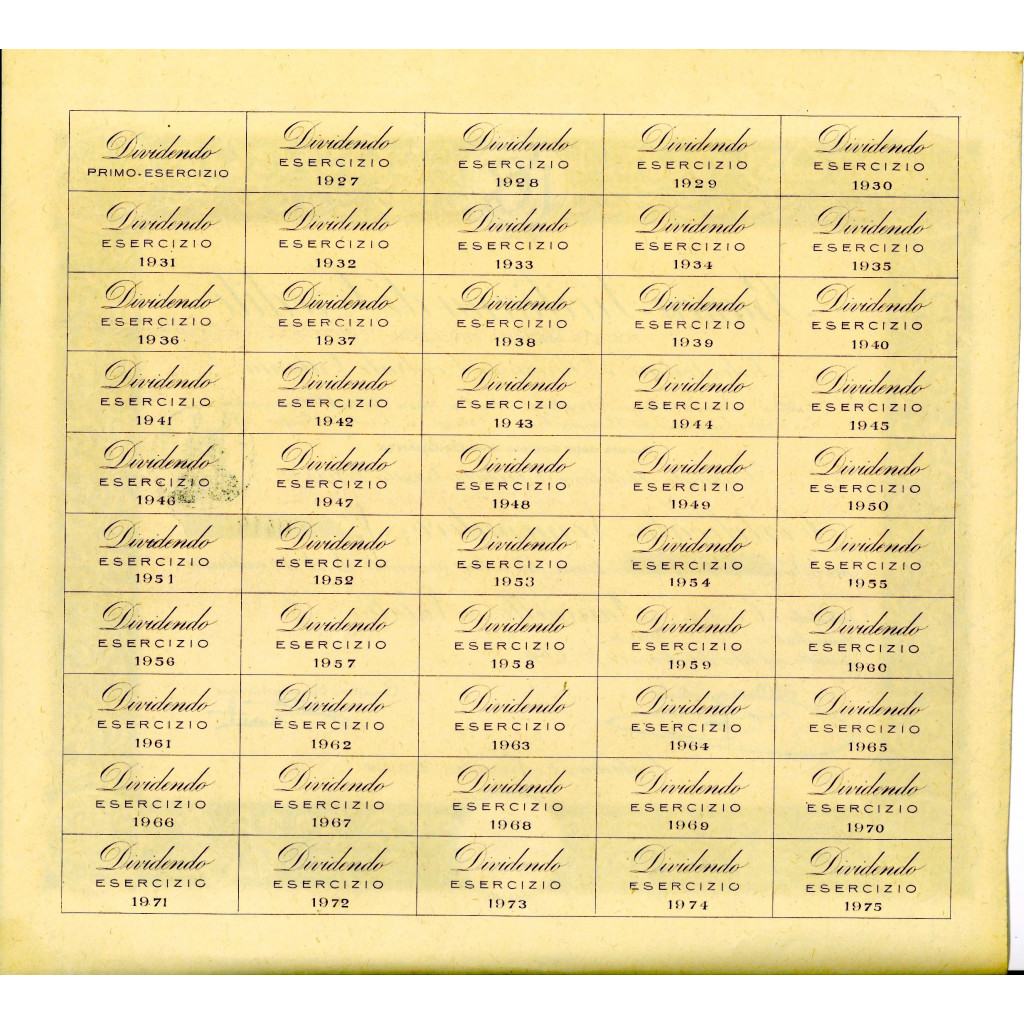 Dividendo
PRIMO-ESERCIZIO
Dividendo
ESERCIZIO
1927
Dividendo
ESERCIZIO
1928
Dividendo
ESERCIZIO
1929
Dividendo
ESERCIZIO
1930
Dividendo
ESERCIZIO
1931
Dividendo
ESERCIZIO
1932
Dividendo
ESERCIZIO
1933
Dividendo
ESERCIZIO
1934
Dividendo
ESERCIZIO
1935
Dividendo
ESERCIZIO
1936
Dividendo
ESERCIZIO
1937
Dividendo
ESERCIZIO
1938
Dividendo
ESERCIZIO
1939
Dividendo
ESERCIZIO
1940
Dividendo
ESERCIZIO
1941
Dividendo
ESERCIZIO
1942
Dividendo
ESERCIZIO
1943
Dividendo
ESERCIZIO
1944
Dividendo
ESERCIZIO
1945
Dividendo
ESERCIZIO
1946
Dividendo
ESERCIZIO
1947
Dividendo
ESERCIZIO
1948
Dividendo
ESERCIZIO
1949
Dividendo
ESERCIZIO
1950
Dividendo
ESERCIZIO
1951
Dividendo
ESERCIZIO
1952
Dividendo
ESERCIZIO
1953
Dividendo
ESERCIZIO
1954
Dividendo
ESERCIZIO
1955
Dividendo
ESERCIZIO
1956
Dividendo
ESERCIZIO
1957
Dividendo
ESERCIZIO
1958
Dividendo
ESERCIZIO
1959
Dividendo
ESERCIZIO
1960
Dividendo
ESERCIZIO
1961
Dividendo
ESERCIZIO
1962
Dividendo
ESERCIZIO
1963
Dividendo
ESERCIZIO
1964
Dividendo
ESERCIZIO
1965
Dividendo
ESERCIZIO
1966
Dividendo
ESERCIZIO
1967
Dividendo
ESERCIZIO
1968
Dividendo
ESERCIZIO
1969
Dividendo
ESERCIZIO
1970
Dividendo
ESERCIZIO
1971
Dividendo
ESERCIZIO
1972
Dividendo
ESERCIZIO
1973
Dividendo
ESERCIZIO
1974
Dividendo
ESERCIZIO
1975